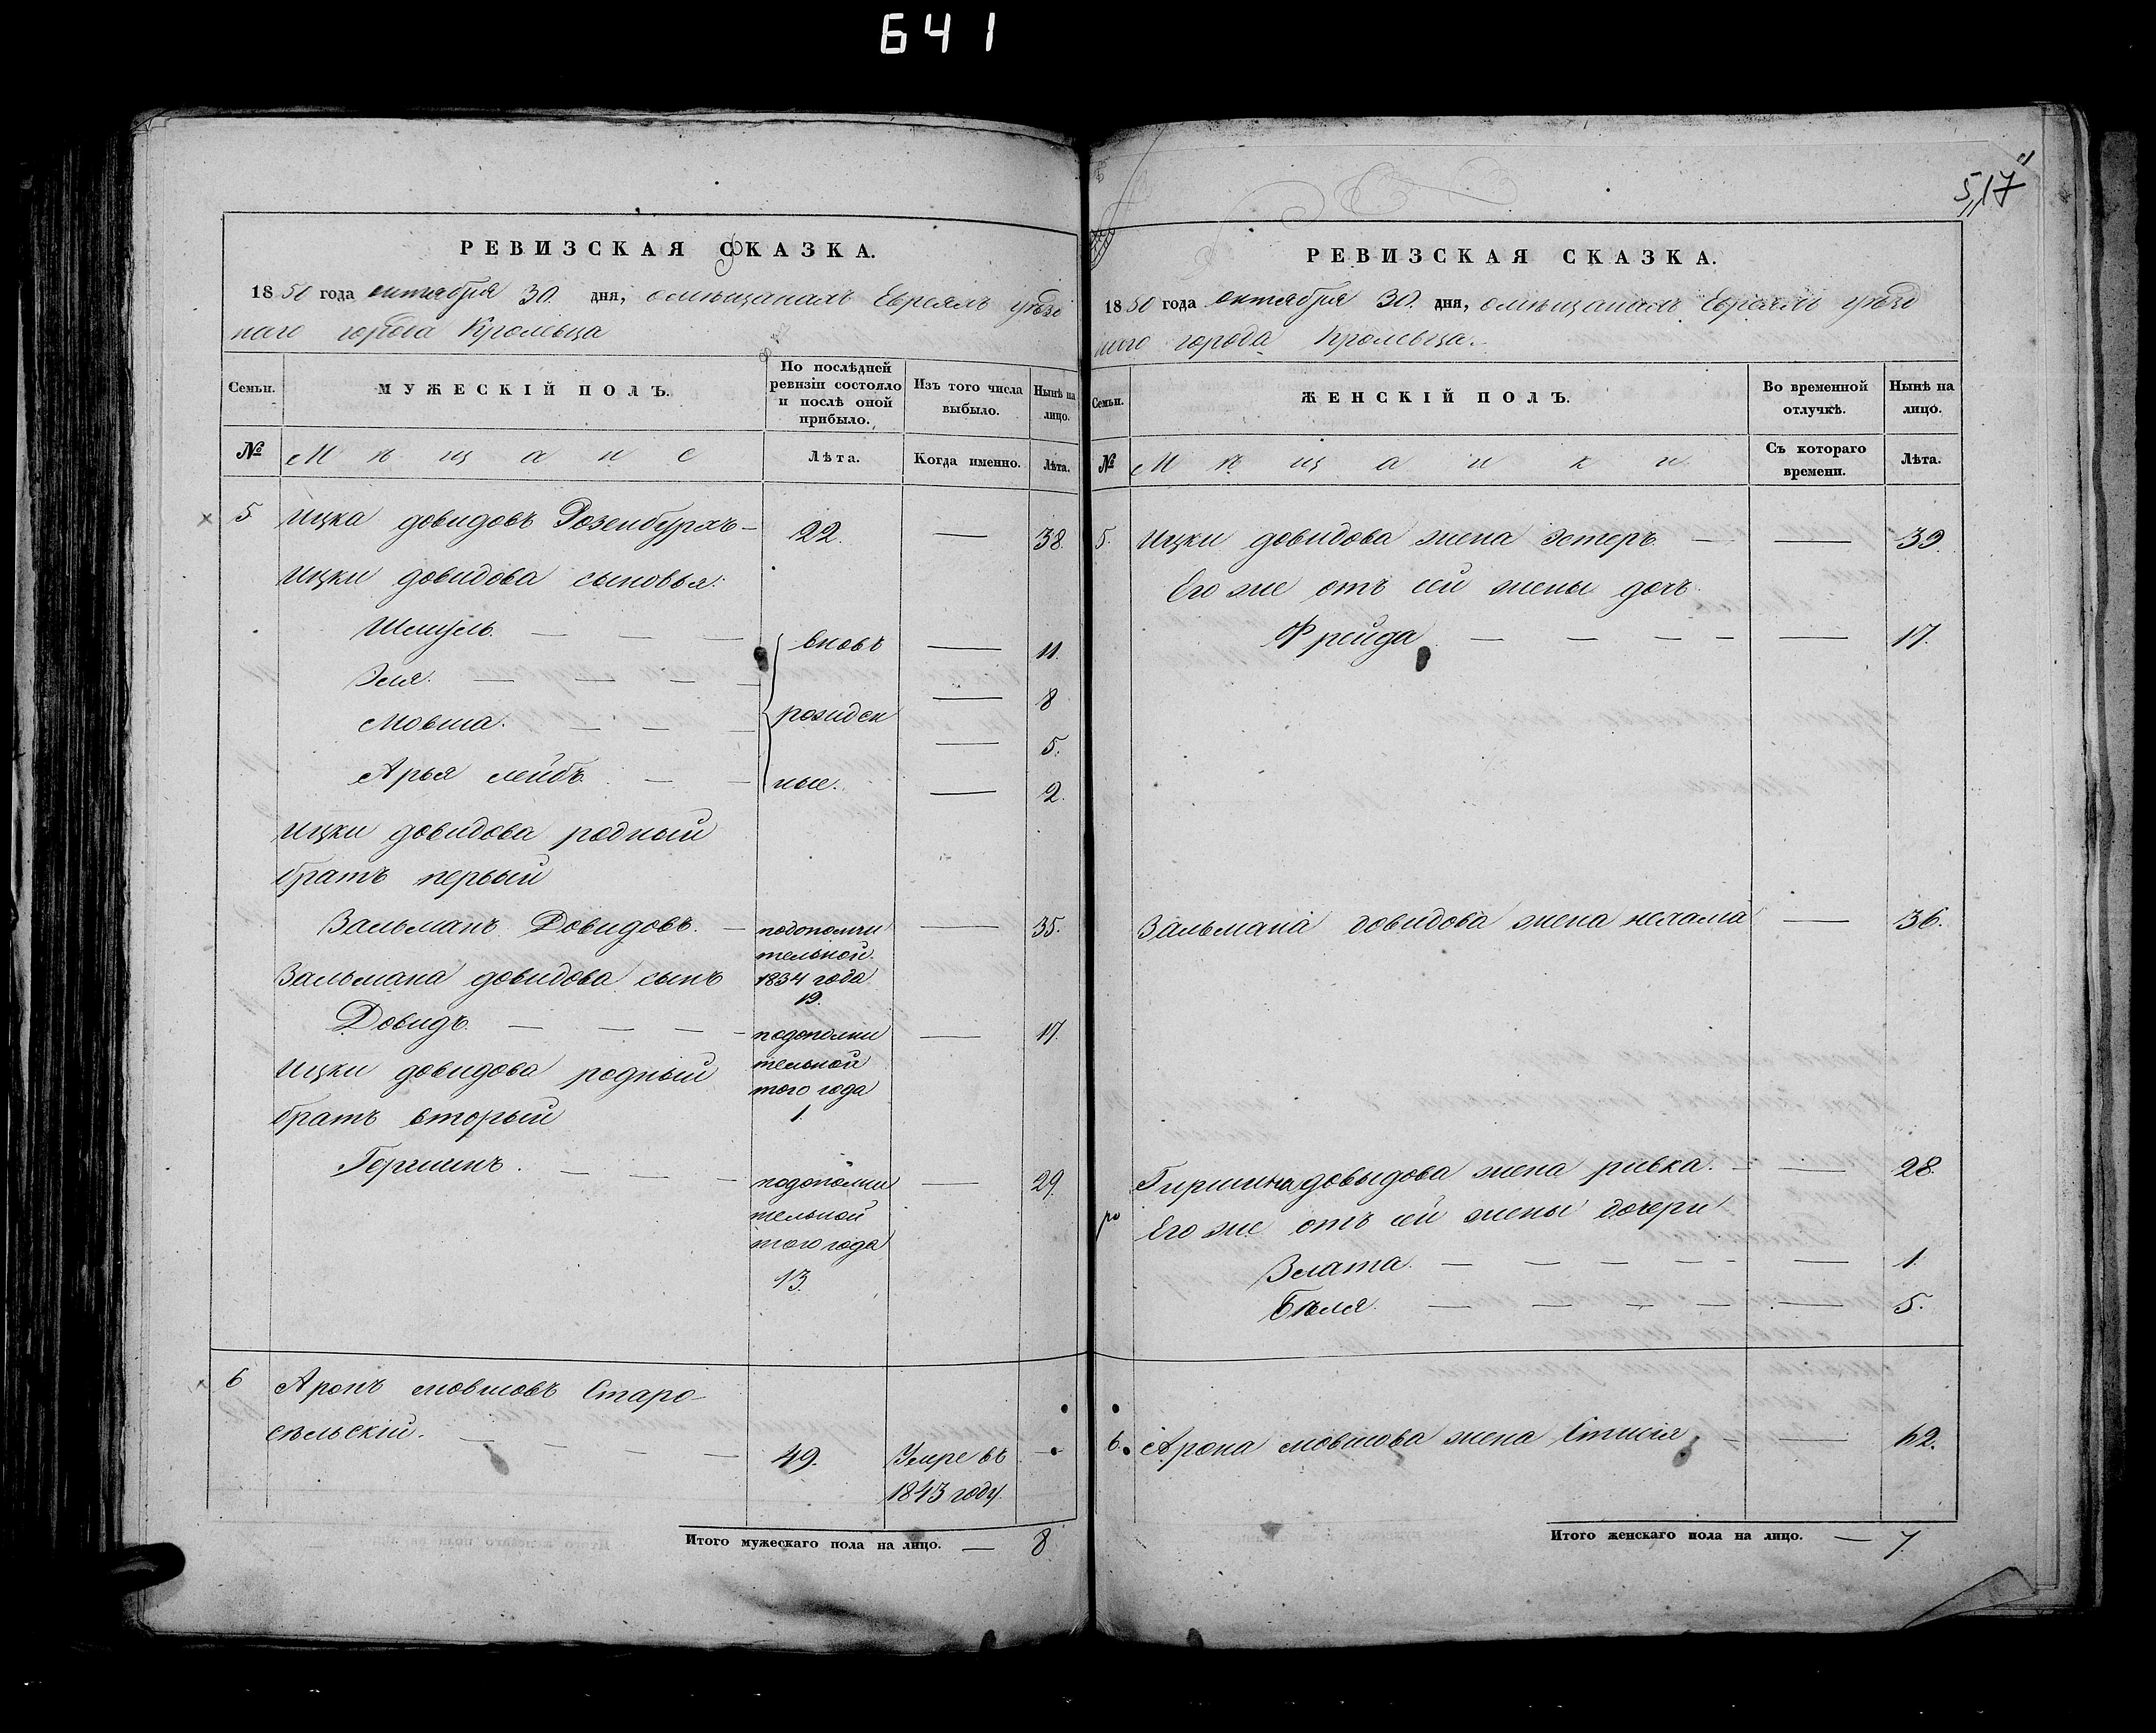 641
5,17
РЕВИЗСКАЯ СКАЗКА.
1850 года октября 30. дня, о мѣщанахъ Евреяхъ уѣзд
наго города Кролевца
Семьи.
МУЖЕСКІЙ ПОЛЪ.
По послѣдней
ревизіи состояло
и послѣ оной
прибыло.
Изъ того числа
выбыло.
Нынѣ на
лицо.
№
Мѣщане
Лѣта.
Когда именно.
Лѣта.
5 Ицка довидовъ Розенбурхъ — 22. — 38.
Ицки довидова сыновья:
Шмуль. — — — вновь — 11.
Эля. — — — — — 8
Мовша. — — — рожден — 5.
Арья лейбъ. — — ные. — 2.
Ицки довидова родный
братъ первый
Зальманъ Довидовъ. — подополни — 35.
тельной
Зальмана довидова сынъ 1834 года
19.
Довидъ. — — — — подополни — 17.
Ицки довидова родный тельной
того года
братъ вторый 1.
Гершинъ. — — — подополни — 29.
тельной
того года
13.
6 Аронъ мовшовъ Старо-
сѣльскій. — — — — 49. Умре въ —
1843 году.
Итого мужескаго пола на лицо. — 8
РЕВИЗСКАЯ СКАЗКА.
1850 года октября 30. дня, о мѣщанахъ Евреяхъ уѣзд
ного города Кролевца.
Семьи.
ЖЕНСКІЙ ПОЛЪ.
Во временной
отлучкѣ.
Нынѣ на
лицо.
№
Мѣщанки
Съ котораго
времени.
Лѣта.
5. Ицки довидова жена Эстеръ — — 39.
Его же отъ сей жены дочь
Фрейда — — — — — 17.
Зальмана довидова жена нехама — 36.
Гиршина довыдова жена ривка. — — 28.
Его же отъ сей жены дочери
Злата. — — — — — — 1.
Бѣля. — — — — — 5.
6. Арона мовшова жена — — 62.
Итого женскаго пола на лицо. — 7.